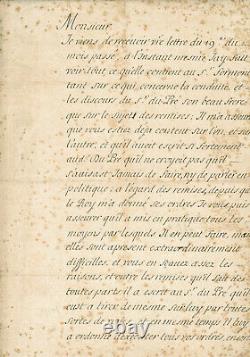 Monsieur
Je viens de recevoir v̄re lettre du 19e. du
mois passé, à l'instant mesme j'ay fait
voir tout ce qu'elle contient au Sr.
tant sur ce qui concerne la conduite, et
les discours du Sr. du Pré son beau frere
que sur le sujet des remises; Il m'a
vous a esté deja conteur sur l'un, et sur
l'autre; et qu'il avoit esprit si fortement
au Du Pré qu'il ne croyoit pas qu'il
s'avisast jamais de faire, ny de parler en
politique; à l'égard des remises, depuis que
le Roy m'a donné ses ordres Je vous puis
asseurer qu'il a mis en pratique tous les
moyens par lesquels Il en peut faire, mais
elles sont apresent extraordinairement
difficiles, et vous en scavez assez les
raisons, et outre les remises qu'il fait de
toutes parts il a escrit au Sr. du Pré qu'il
eust a tirer de mesme sur luy par toutes
sortes de voyes, et en mesme temps Il luy
a ordonné d'executer tous vos ordres, en